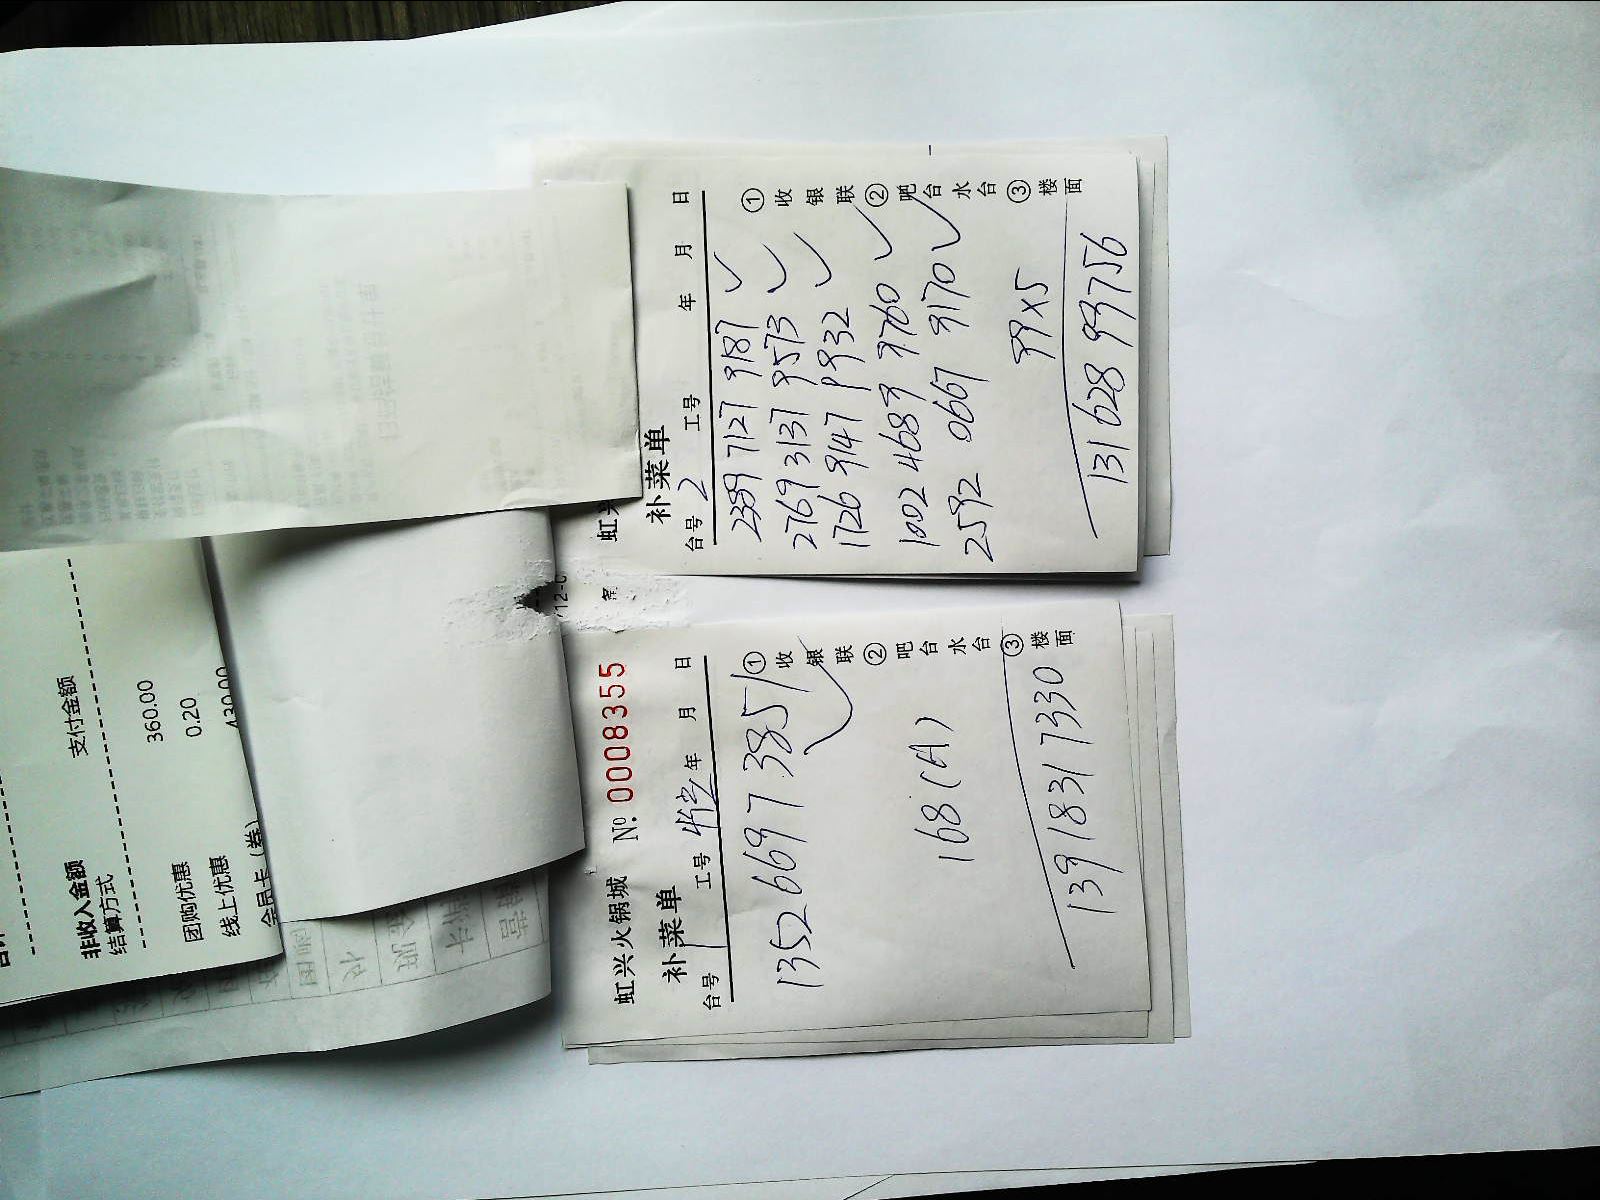 支付金额
360.00
0.20
430.00
非收入金额
结算方式
团购优惠
线上优惠
会员卡（券）
虹兴火锅城 №: 0008355
补菜单
台号 1 工号 年 月 日
1352 6697 385
168(A)
139 1831 7330
①收银联 ②吧台水台 ③楼面
虹
补菜单
台号 2 工号 年 月 日
2389 7127 9187
2769 3137 9573
1726 9147 9932
1002 4689 9760
2592 0667 9170
99x5
131 628 99756
①收银联 ②吧台水台 ③楼面